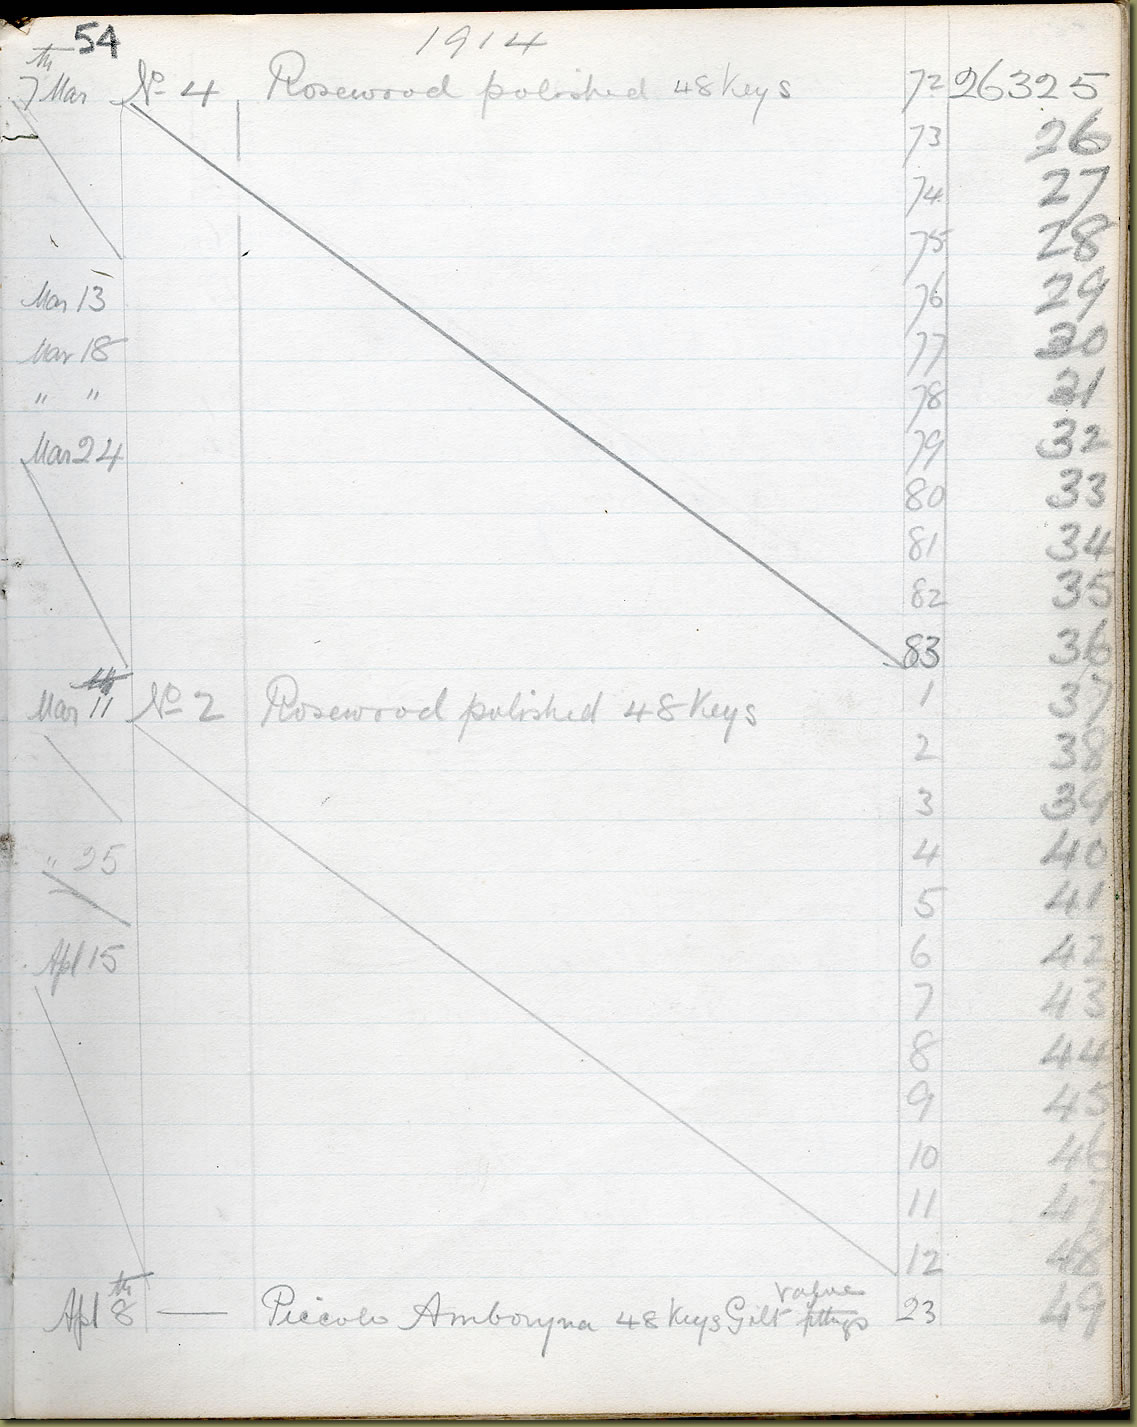 54 1914
7th Mar No 4 Rosewood polished 48 Keys 72 26325
73 26
74 27
75 28
Mar 13 76 29
Mar 18 77 30
" " 78 31
Mar 24 79 32
80 33
81 34
82 35
83 36
Mar 11th No 2 Rosewood polished 48 Keys 1 37
2 38
3 39
" 25 4 40
5 41
Apl 15 6 42
7 43
8 44
9 45
10 46
11 47
12 48
Apl 8th — Piccolo Amboyna 48 Keys Gilt fittings 23 49